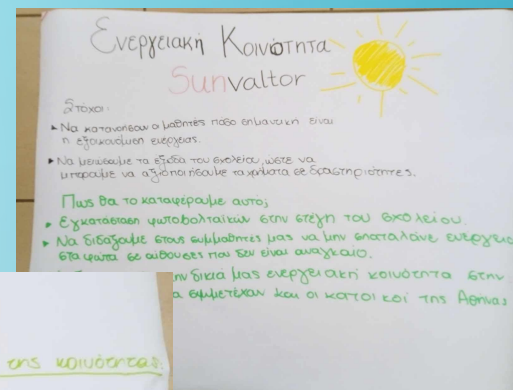 Ενεργειακή Κοινότητα
Sunvaltor
Στόχοι:
▸ Να κατανοήσουν οι μαθητές πόσο σημαντική είναι
η εξοικονόμηση ενέργειας.
▸ Να μειώσουμε τα έξοδα του σχολείου, ώστε να
μπορούμε να αξιοποιήσουμε τα χρήματα σε δραστηριότητες.
Πως θα το καταφέρουμε αυτό;
▸ Εγκατάσταση φωτοβολταϊκών στην στέγη του σχολείου.
▸ Να διδάξουμε στους συμμαθητές μας να μην σπαταλάνε ενέργεια
στα φώτα σε αίθουσες που δεν είναι αναγκαίο.
ην δικιά μας ενεργειακή κοινότητα στην
α συμμετέχαν και οι κατοικοί της Αθήνας
της κοινότητας: